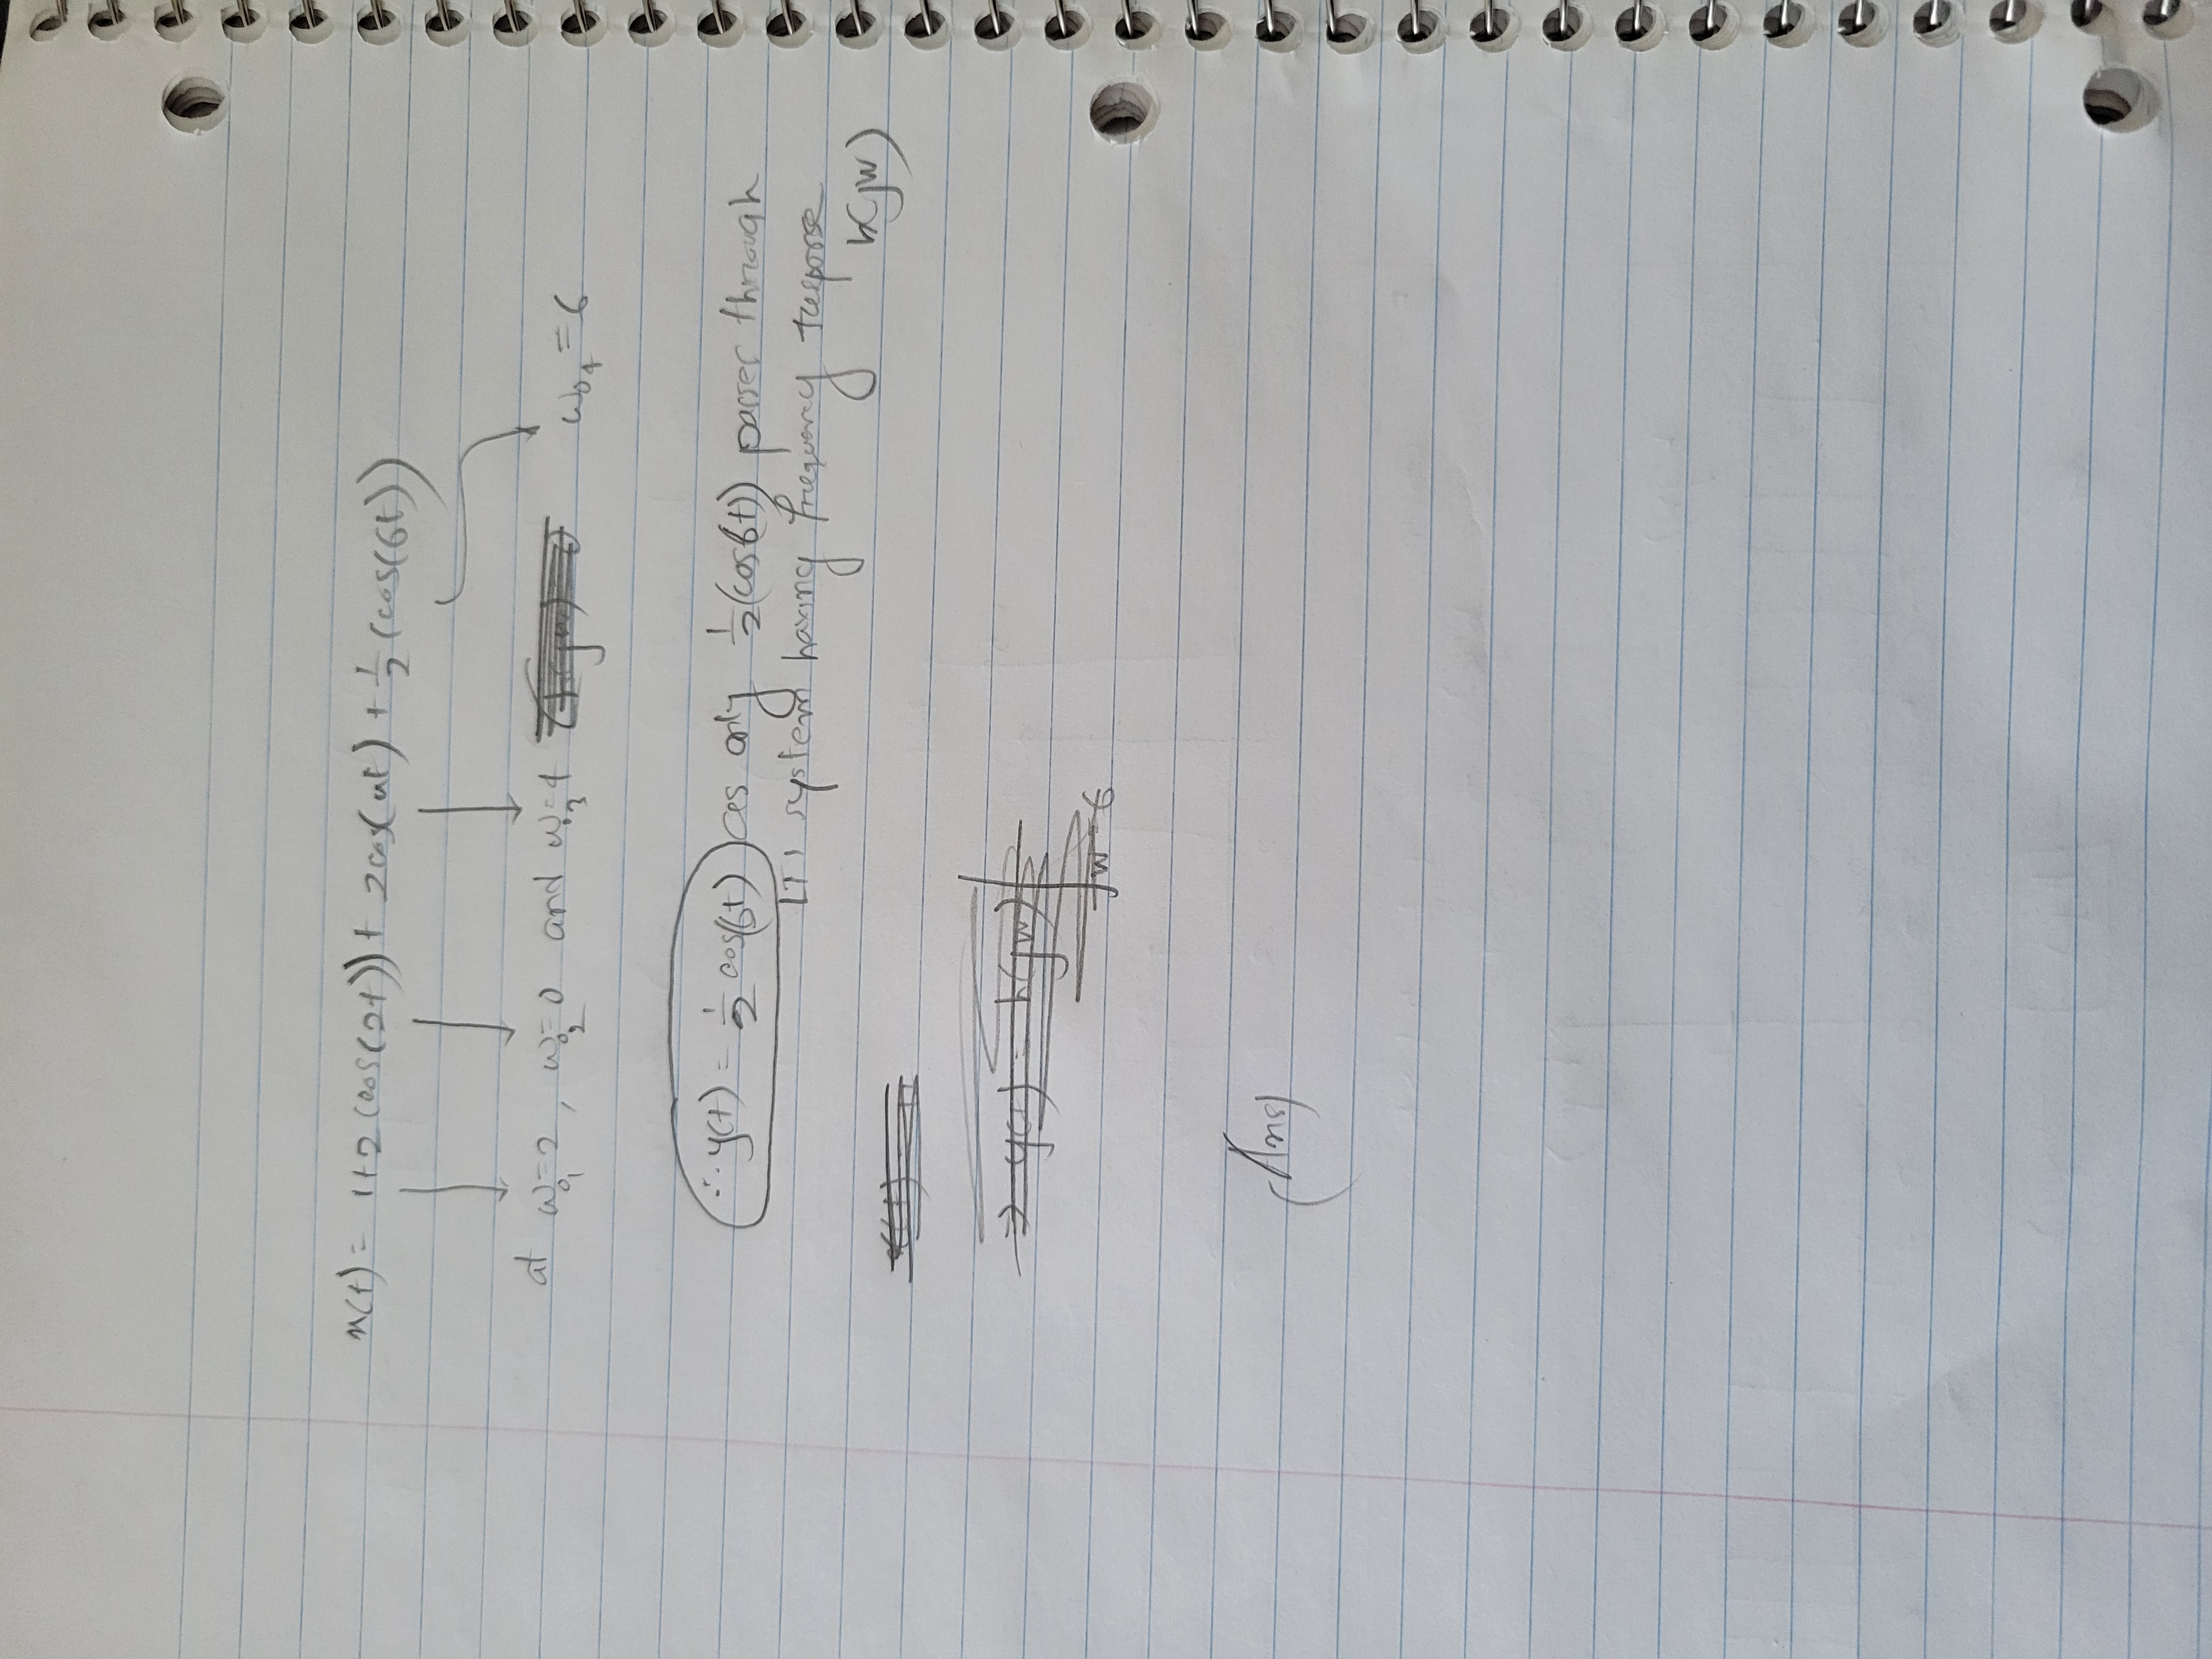 x(t) = 1+2(cos(2t)) + 2cos(4t) + 1/2 (cos(6t))
at ω₀₁=2, ω₀₂=0 and ω₀₃=4 ω₀₄=6
∴ y(t) = 1/2 cos(6t) as only 1/2(cos6t)) passes through
LTI system having frequency response
h(jw)
⇒ y(t) = h(jw)|
w=6
(Ans)